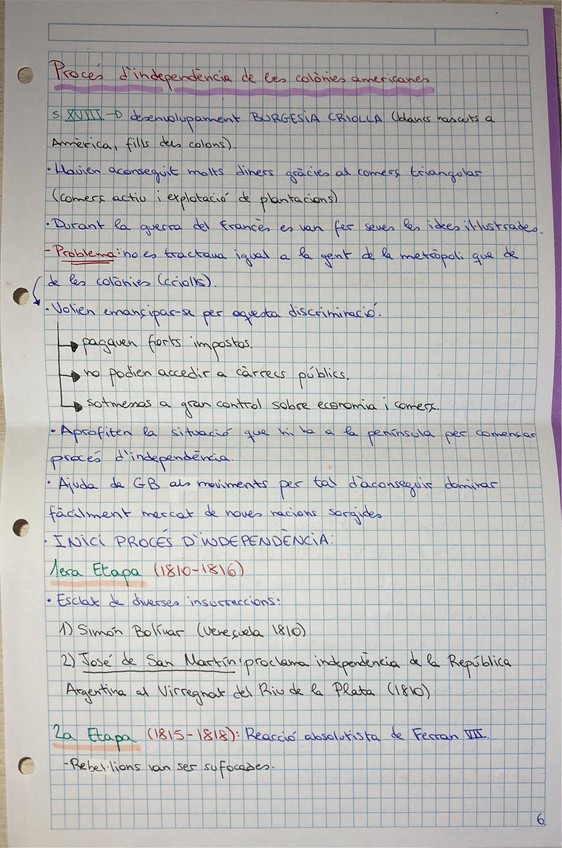 Procés d'independència de les colònies americanes
s. XVIII → desenvolupament BURGESIA CRIOLLA (blancs nascuts a
Amèrica, fills dels colons).
· Havien aconseguit molts diners gràcies al comerç triangular
(comerç actiu i explotació de plantacions)
· Durant la guerra del francès es van fer seves les idees il·lustrades.
- Problema: no es tractava igual a la gent de la metròpoli que de
de les colònies (criolls).
· Volien emancipar-se per aquesta discriminació.
→ pagaven forts impostos.
→ no podien accedir a càrrecs públics.
→ sotmesos a gran control sobre economia i comerç.
· Aprofiten la situació que hi ha a la península per començar
procés d'independència.
· Ajuda de GB als moviments per tal d'aconseguir dominar
fàcilment mercat de noves nacions sorgides
· INICI PROCÉS D'INDEPENDÈNCIA:
1era Etapa (1810-1816)
· Esclat de diverses insurreccions:
1) Simón Bolívar (Veneçuela 1810)
2) José de San Martín: proclama independència de la República
Argentina al Virregnat del Riu de la Plata (1810)
2a Etapa (1815-1818): Reacció absolutista de Ferran VII.
- Rebel·lions van ser sufocades.
6